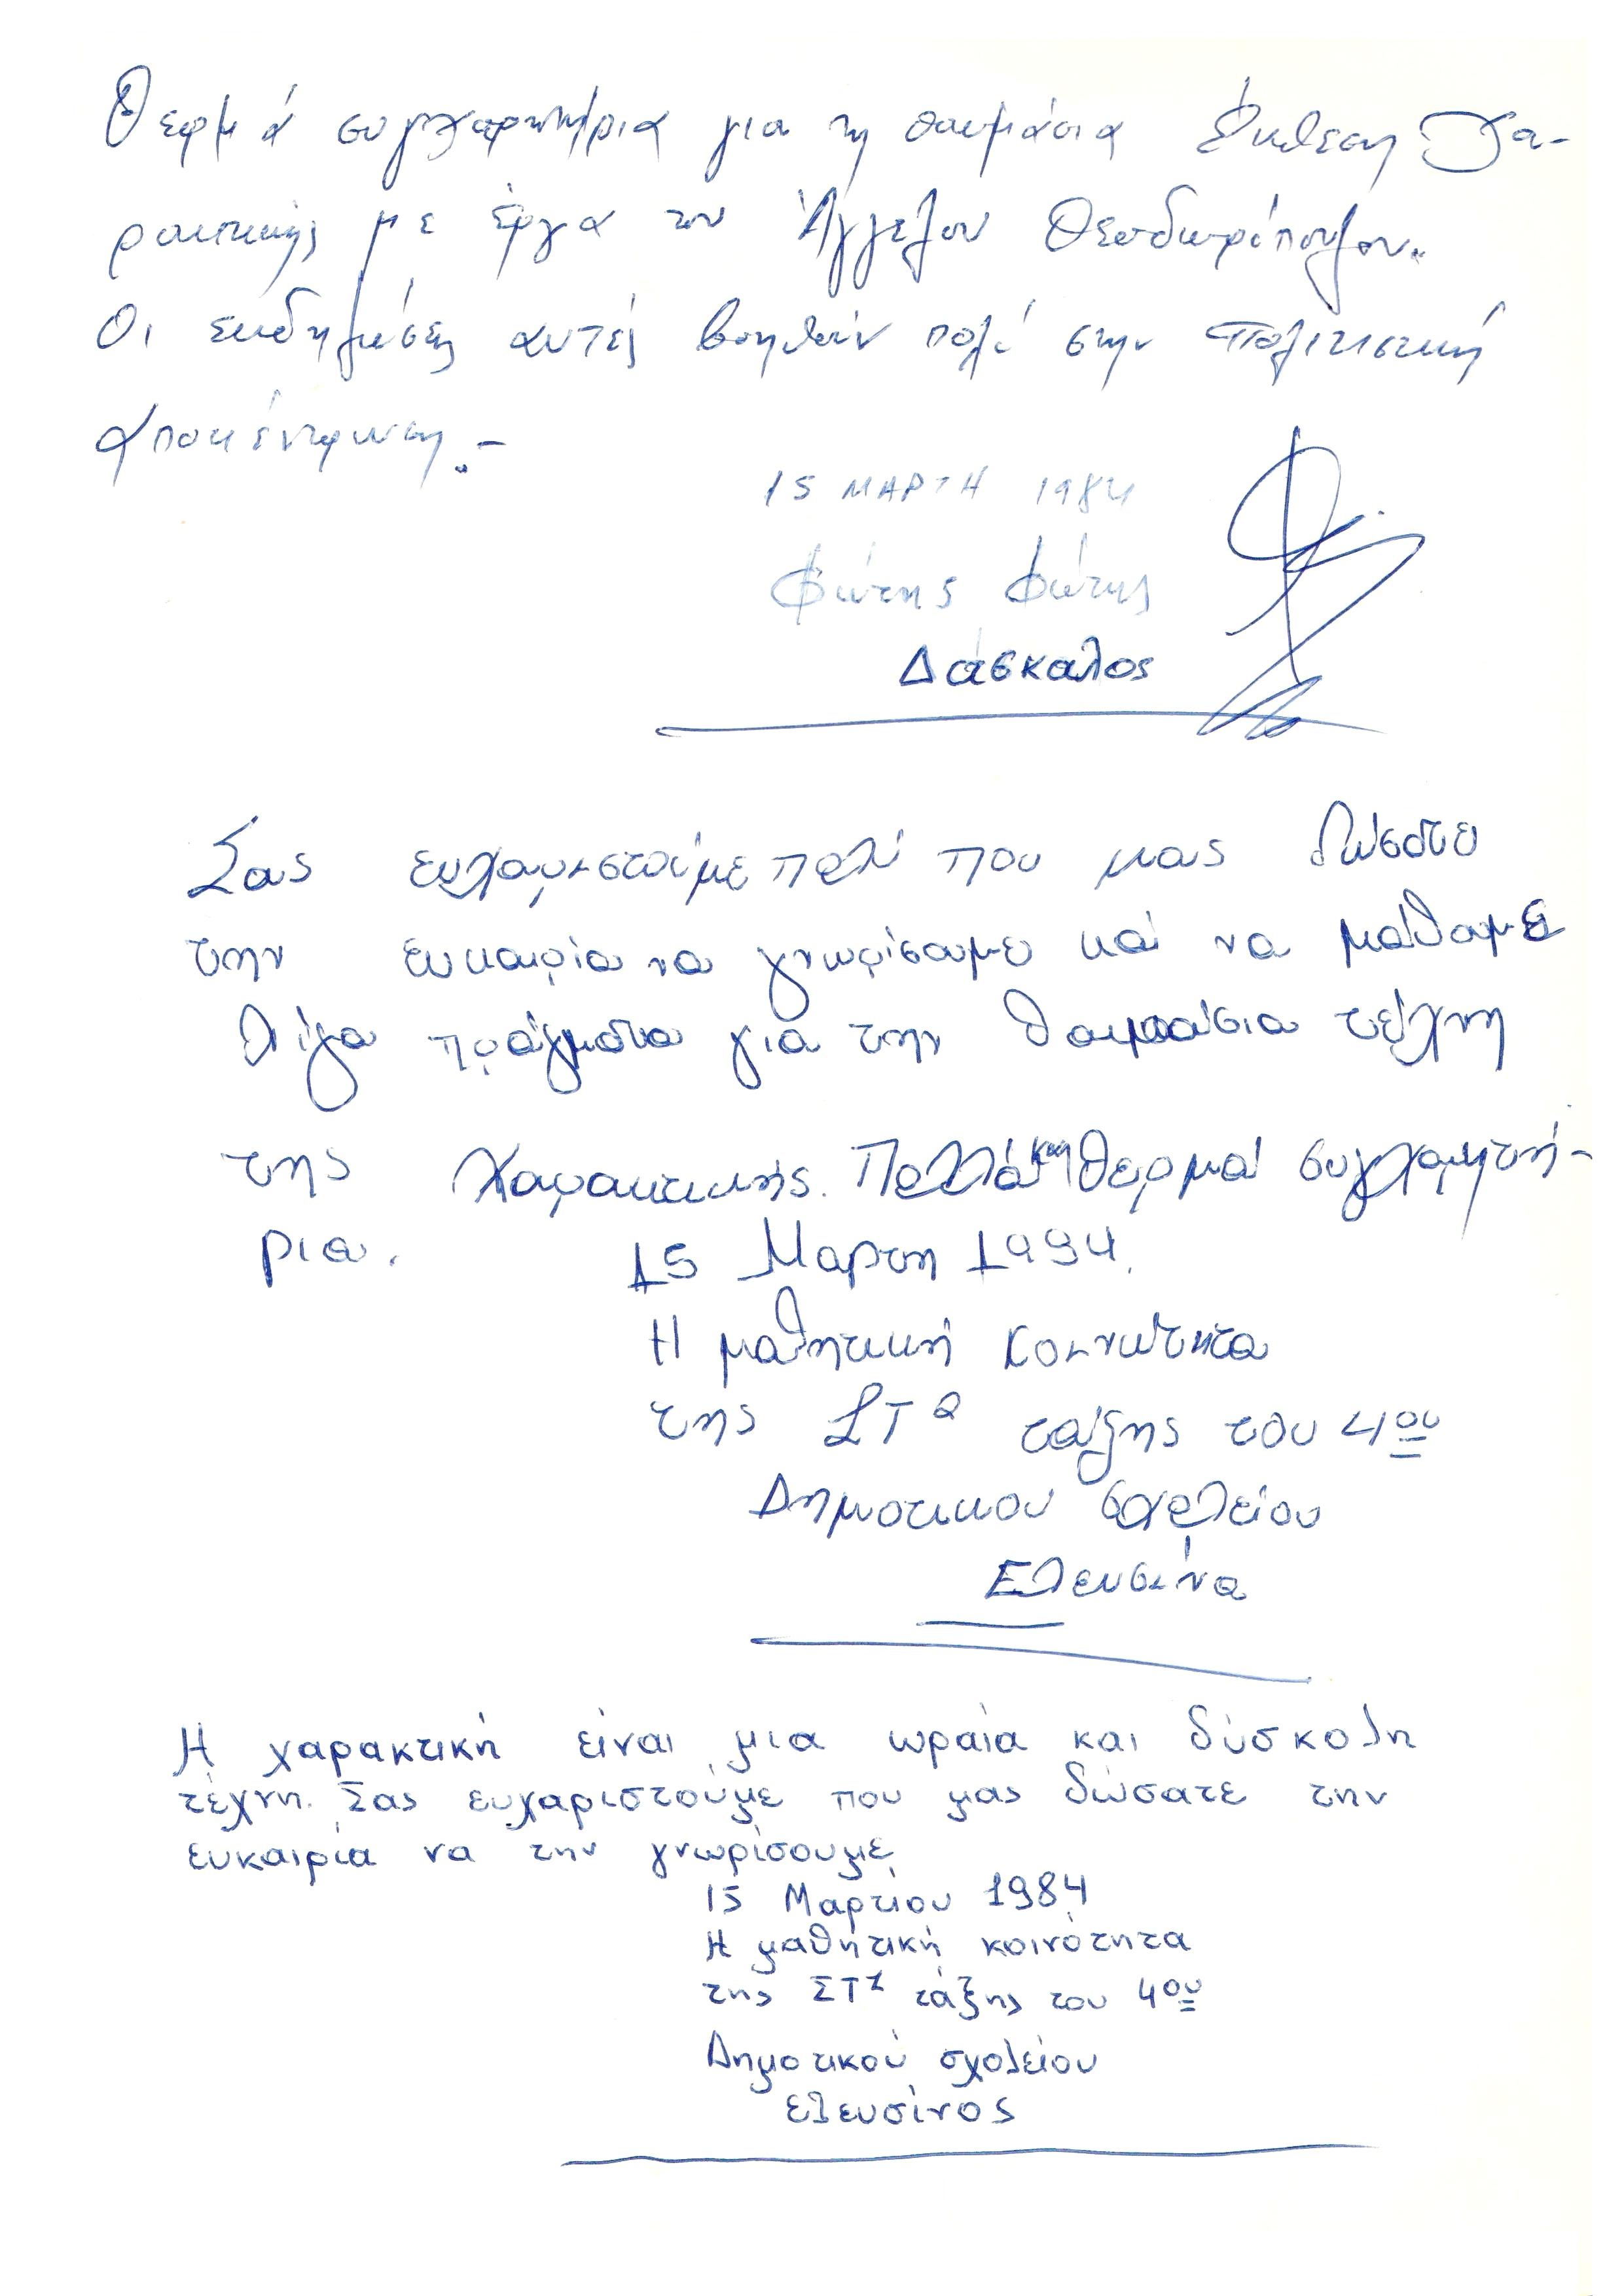 Θερμά συγχαρητήρια για τη θαυμάσια Έκθεση Χα-
ρακτικής με έργα του Άγγελου Θεοδωρόπουλου.
Οι εκδηλώσεις αυτές βοηθούν πολύ στην Πολιτιστική
αποκέντρωση.-
15 ΜΑΡΤΗ 1984
Φώτης Φώτης
Δάσκαλος
Σας ευχαριστούμε πολύ που μας δώσατε
την ευκαιρία να γνωρίσουμε και να μάθαμε
λίγα πράγματα για την θαυμάσια τέχνη
της Χαρακτικής. Πολλά και θερμά συγχαρητή-
ρια. 15 Μαρτη 1984.
Η μαθητική κοινώτητα
της ΣΤ τάξης του 4ου
Δημοτικού σχολείου
Ελευσίνα
Η χαρακτική είναι μια ωραία και δύσκολη
τέχνη. Σας ευχαριστούμε που μας δώσατε την
ευκαιρία να την γνωρίσουμε
15 Μαρτίου 1984
Η μαθητική κοινότητα
της ΣΤ τάξης του 4ου
Δημοτικού σχολείου
ελευσίνος